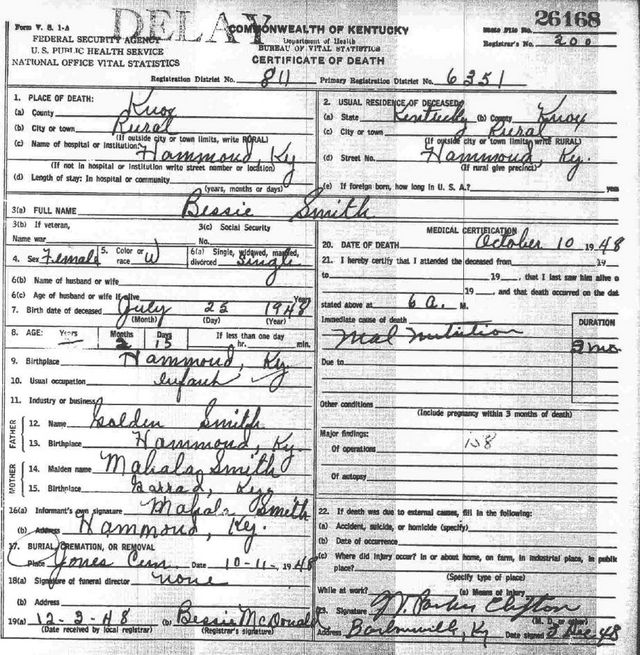 DELAY
Form V. S. 1-A
FEDERAL SECURITY AGENCY
U.S. PUBLIC HEALTH SERVICE
NATIONAL OFFICE VITAL STATISTICS
COMMONWEALTH OF KENTUCKY
Department of Health
BUREAU OF VITAL STATISTICS
CERTIFICATE OF DEATH
File No. 26168
Registrar's No. 200
Registration District No. 811 Primary Registration District No. 6351
1. PLACE OF DEATH:
(a) County Knox
(b) City or town Rural
(If outside city or town limits, write RURAL)
(c) Name of hospital or institution: Hammond, Ky
(If not in hospital or institution write street number or location)
(d) Length of stay: In hospital or community
(years, months or days)
2. USUAL RESIDENCE OF DECEASED:
(a) State Kentucky (b) County Knox
(c) City or town Rural
(If outside city or town limits write RURAL)
(d) Street No. Hammond, Ky.
(If rural give precinct)
(e) If foreign born, how long in U. S. A.? years
3(a) FULL NAME Bessie Smith
3(b) If veteran,
Name war
3(c) Social Security
No.
4. Sex Female 5. Color or race W 6(a) Single, widowed, married, divorced Single
6(b) Name of husband or wife
6(c) Age of husband or wife if alive Years
7. Birth date of deceased July 25 1948
(Month) (Day) (Year)
8. AGE: Years Months 2 Days 15 If less than one day
hr. min.
9. Birthplace Hammond, Ky.
10. Usual occupation infant
11. Industry or business
FATHER
12. Name Golden Smith
13. Birthplace Hammond, Ky.
MOTHER
14. Maiden name Mahala Smith
15. Birthplace Garrad, Ky.
16(a) Informant's own signature Mahala Smith
(b) Address Hammond, Ky.
17. BURIAL, CREMATION, OR REMOVAL
Place Jones Cem 10-11- 1948
18(a) Signature of funeral director none
(b) Address
19(a) 12-3-48 (b) Bessie McDonald
(Date received by local registrar) (Registrar's signature)
MEDICAL CERTIFICATION
20. DATE OF DEATH October 10 1948
21. I hereby certify that I attended the deceased from 19
to 19 , that I last saw him alive o
19 , and that death occurred on the dat
stated above at 6 a. M.
Immediate cause of death
Mal nutrition
DURATION
2 mo
Due to
Other conditions
(Include pregnancy within 3 months of death)
Major findings:
Of operations
158
Of autopsy
22. If death was due to external causes, fill in the following:
(a) Accident, suicide, or homicide (specify)
(b) Date of occurrence
(c) Where did injury occur? In or about home, on farm, in industrial place, in publi
place?
(Specify type of place)
While at work? (e) Means of Injury
23. Signature Parker Clifton
(M. D. or other)
Address Barbourville, Ky Date signed 3 Dec 48